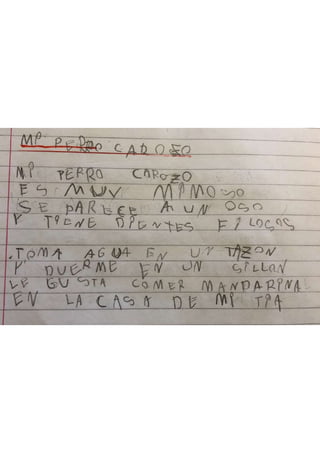 MI PERRO CAROZO
MI PERRO CAROZO
ES MUY MIMOSO
SE PARECE A UN OSO
Y TIENE DIENTES FILOSOS
.TOMA AGUA EN UN TAZON
Y DUERME EN UN SILLON
LE GUSTA COMER MANDARINA
EN LA CASA DE MI TIA